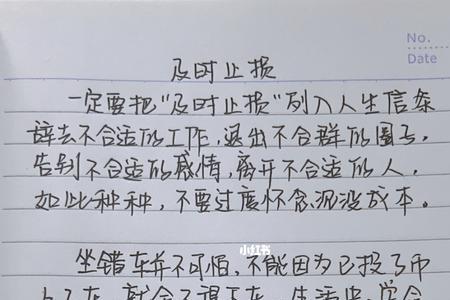 No.
Date
及时止损
一定要把"及时止损"列入人生信条
辞去不合适的工作,退出不合群的圈子。
告别不合适的感情,离开不合适的人,
如此种种,不要过度怀念沉没成本。
小红书
坐错车并不可怕,不能因为已投了币